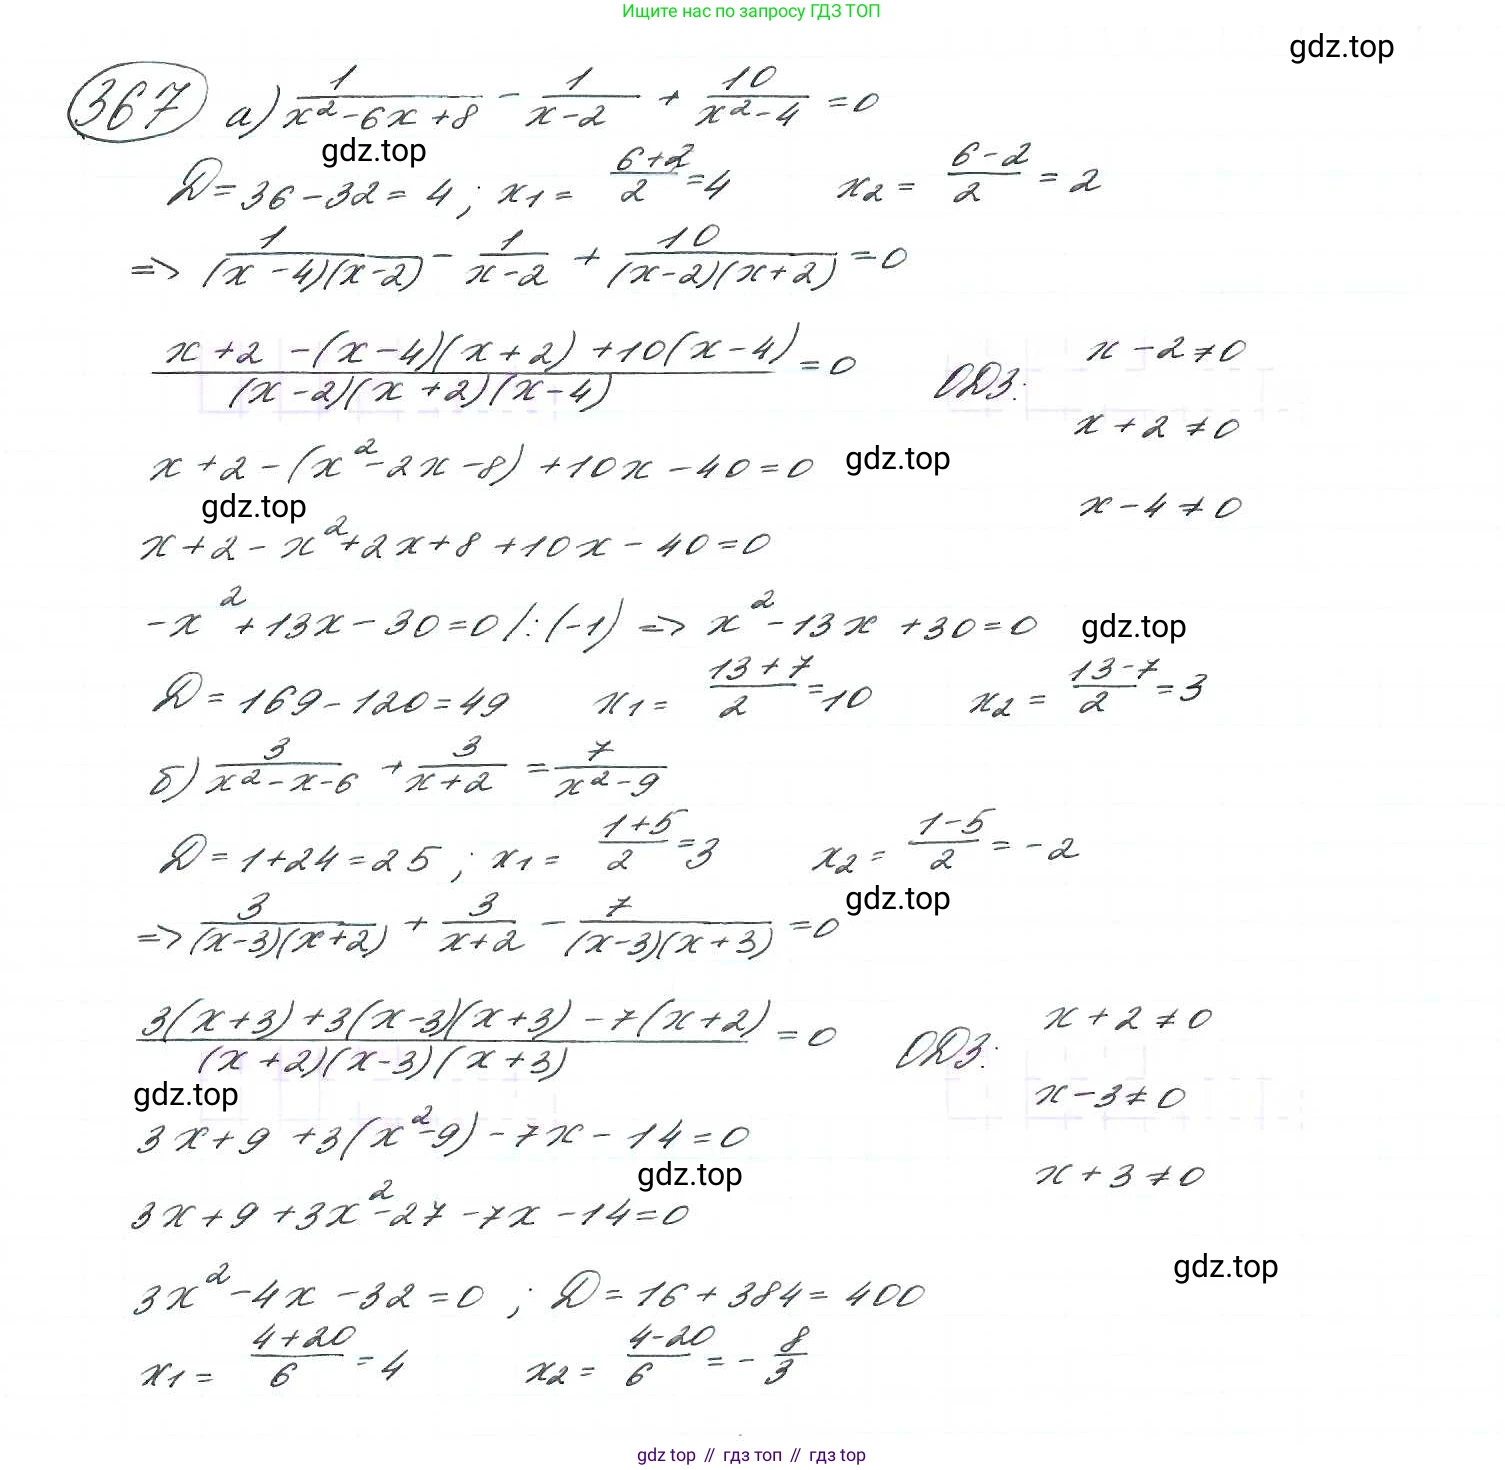 Ищите нас по запросу ГДЗ ТОП
gdz.top
367 а) 1/(x²-6x+8) - 1/(x-2) + 10/(x²-4) = 0
gdz.top
D = 36 - 32 = 4; x₁ = (6+2)/2 = 4 x₂ = (6-2)/2 = 2
=> 1/((x-4)(x-2)) - 1/(x-2) + 10/((x-2)(x+2)) = 0
(x+2 - (x-4)(x+2) + 10(x-4))/((x-2)(x+2)(x-4)) = 0 ОДЗ: x-2≠0
x+2≠0
x+2-(x²-2x-8)+10x-40=0 gdz.top
gdz.top x-4≠0
x+2-x²+2x+8+10x-40=0
-x²+13x-30=0 /:(-1) => x²-13x+30=0 gdz.top
D = 169-120=49 x₁ = (13+7)/2 = 10 x₂ = (13-7)/2 = 3
б) 3/(x²-x-6) + 3/(x+2) = 7/(x²-9)
D = 1+24=25; x₁ = (1+5)/2 = 3 x₂ = (1-5)/2 = -2
gdz.top
=> 3/((x-3)(x+2)) + 3/(x+2) - 7/((x-3)(x+3)) = 0
(3(x+3)+3(x-3)(x+3)-7(x+2))/((x+2)(x-3)(x+3)) = 0 ОДЗ: x+2≠0
gdz.top x-3≠0
3x+9+3(x²-9)-7x-14=0
gdz.top x+3≠0
3x+9+3x²-27-7x-14=0
gdz.top
3x²-4x-32=0; D=16+384=400
x₁ = (4+20)/6 = 4 x₂ = (4-20)/6 = -8/3
gdz top // гдз топ // гдз top